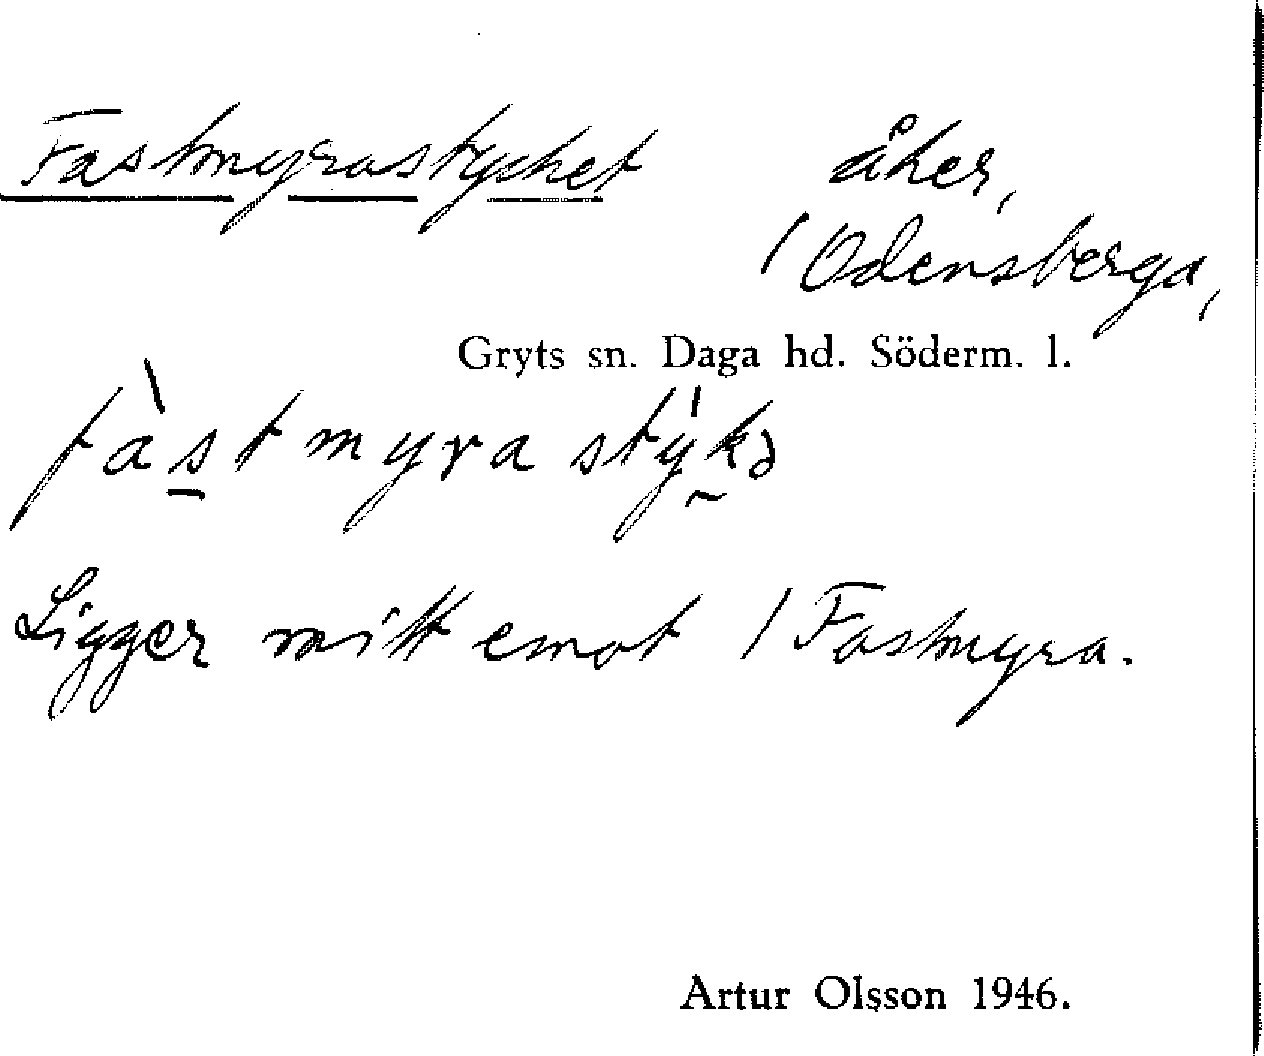 Fastmyrastycket åker,
/ Odensberga,
Gryts sn. Daga hd. Söderm. l.
fàstmyrastýkə
Ligger mitt emot / Fastmyra.
Artur Olsson 1946.